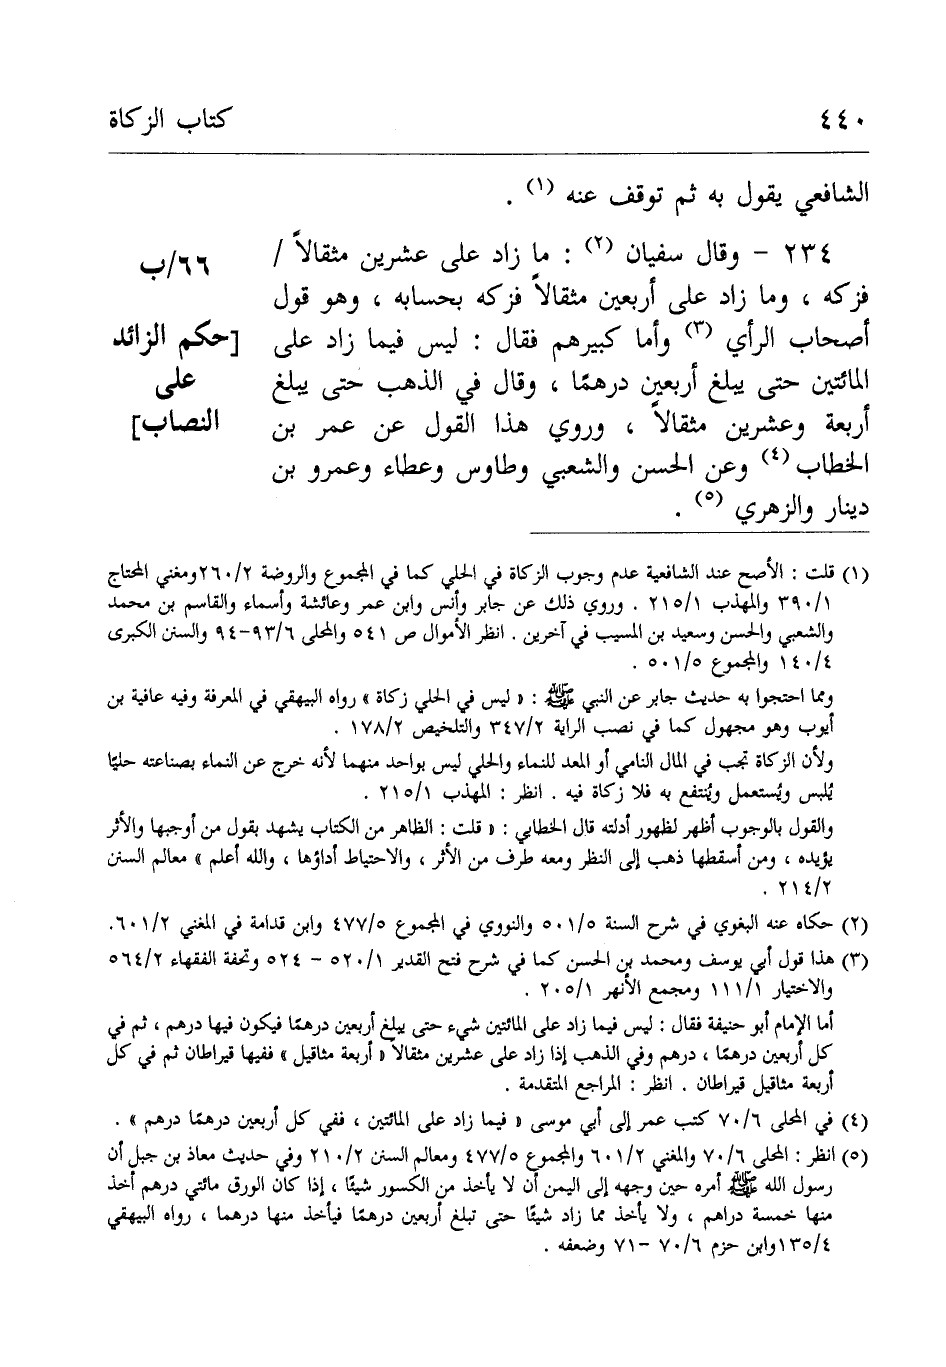 ٤٤٠ كتاب الزكاة
الشافعي يقول به ثم توقف عنه (١) .
٢٣٤ – وقال سفيان (٢) : ما زاد على عشرين مثقالاً /
فزكه ، وما زاد على أربعين مثقالاً فزكه بحسابه ، وهو قول
أصحاب الرأي (٣) وأما كبيرهم فقال : ليس فيما زاد على
المائتين حتى يبلغ أربعين درهمًا ، وقال في الذهب حتى يبلغ
أربعة وعشرين مثقالاً ، وروي هذا القول عن عمر بن
الخطاب (٤) وعن الحسن والشعبي وطاوس وعطاء وعمرو بن
دينار والزهري (٥) .
٦٦/ب
[حكم الزائد
على
النصاب]
(١) قلت : الأصح عند الشافعية عدم وجوب الزكاة في الحلي كما في المجموع والروضة ٢٦٠/٢ومغني المحتاج
٣٩٠/١ والمهذب ٢١٥/١ . وروي ذلك عن جابر وأنس وابن عمر وعائشة وأسماء والقاسم بن محمد
والشعبي والحسن وسعيد بن المسيب في آخرين . انظر الأموال ص ٥٤١ والمحلى ٩٣/٦–٩٤ والسنن الكبرى
١٤٠/٤ والمجموع ٥٠١/٥ .
ومما احتجوا به حديث جابر عن النبي ﷺ : « ليس في الحلي زكاة » رواه البيهقي في المعرفة وفيه عافية بن
أيوب وهو مجهول كما في نصب الراية ٣٤٧/٢ والتلخيص ١٧٨/٢ .
ولأن الزكاة تجب في المال النامي أو المعد للنماء والحلي ليس بواحد منهما لأنه خرج عن النماء بصناعته حليًا
يُلبس ويُستعمل ويُنتفع به فلا زكاة فيه . انظر : المهذب ٢١٥/١ .
والقول بالوجوب أظهر لظهور أدلته قال الخطابي : « قلت : الظاهر من الكتاب يشهد بقول من أوجبها والأثر
يؤيده ، ومن أسقطها ذهب إلى النظر ومعه طرف من الأثر ، والاحتياط أداؤها ، والله أعلم » معالم السنن
٢١٤/٢ .
(٢) حكاه عنه البغوي في شرح السنة ٥٠١/٥ والنووي في المجموع ٤٧٧/٥ وابن قدامة في المغني ٦٠١/٢.
(٣) هذا قول أبي يوسف ومحمد بن الحسن كما في شرح فتح القدير ٥٢٠/١ – ٥٢٤ وتحفة الفقهاء ٥٦٤/٢
والاختيار ١١١/١ ومجمع الأنهر ٢٠٥/١ .
أما الإمام أبو حنيفة فقال : ليس فيما زاد على المائتين شيء حتى يبلغ أربعين درهمًا فيكون فيها درهم ، ثم في
كل أربعين درهمًا ، درهم وفي الذهب إذا زاد على عشرين مثقالاً « أربعة مثاقيل » ففيها قيراطان ثم في كل
أربعة مثاقيل قيراطان . انظر : المراجع المتقدمة .
(٤) في المحلى ٧٠/٦ كتب عمر إلى أبي موسى « فيما زاد على المائتين ، ففي كل أربعين درهمًا درهم » .
(٥) انظر : المحلى ٧٠/٦ والمغني ٦٠١/٢ والمجموع ٤٧٧/٥ ومعالم السنن ٢١٠/٢ وفي حديث معاذ بن جبل أن
رسول الله ﷺ أمره حين وجهه إلى اليمن أن لا يأخذ من الكسور شيئًا ، إذا كان الورق مائتي درهم أخذ
منها خمسة دراهم ، ولا يأخذ مما زاد شيئًا حتى تبلغ أربعين درهمًا فيأخذ منها درهما ، رواه البيهقي
١٣٥/٤وابن حزم ٧٠/٦ –٧١ وضعفه .